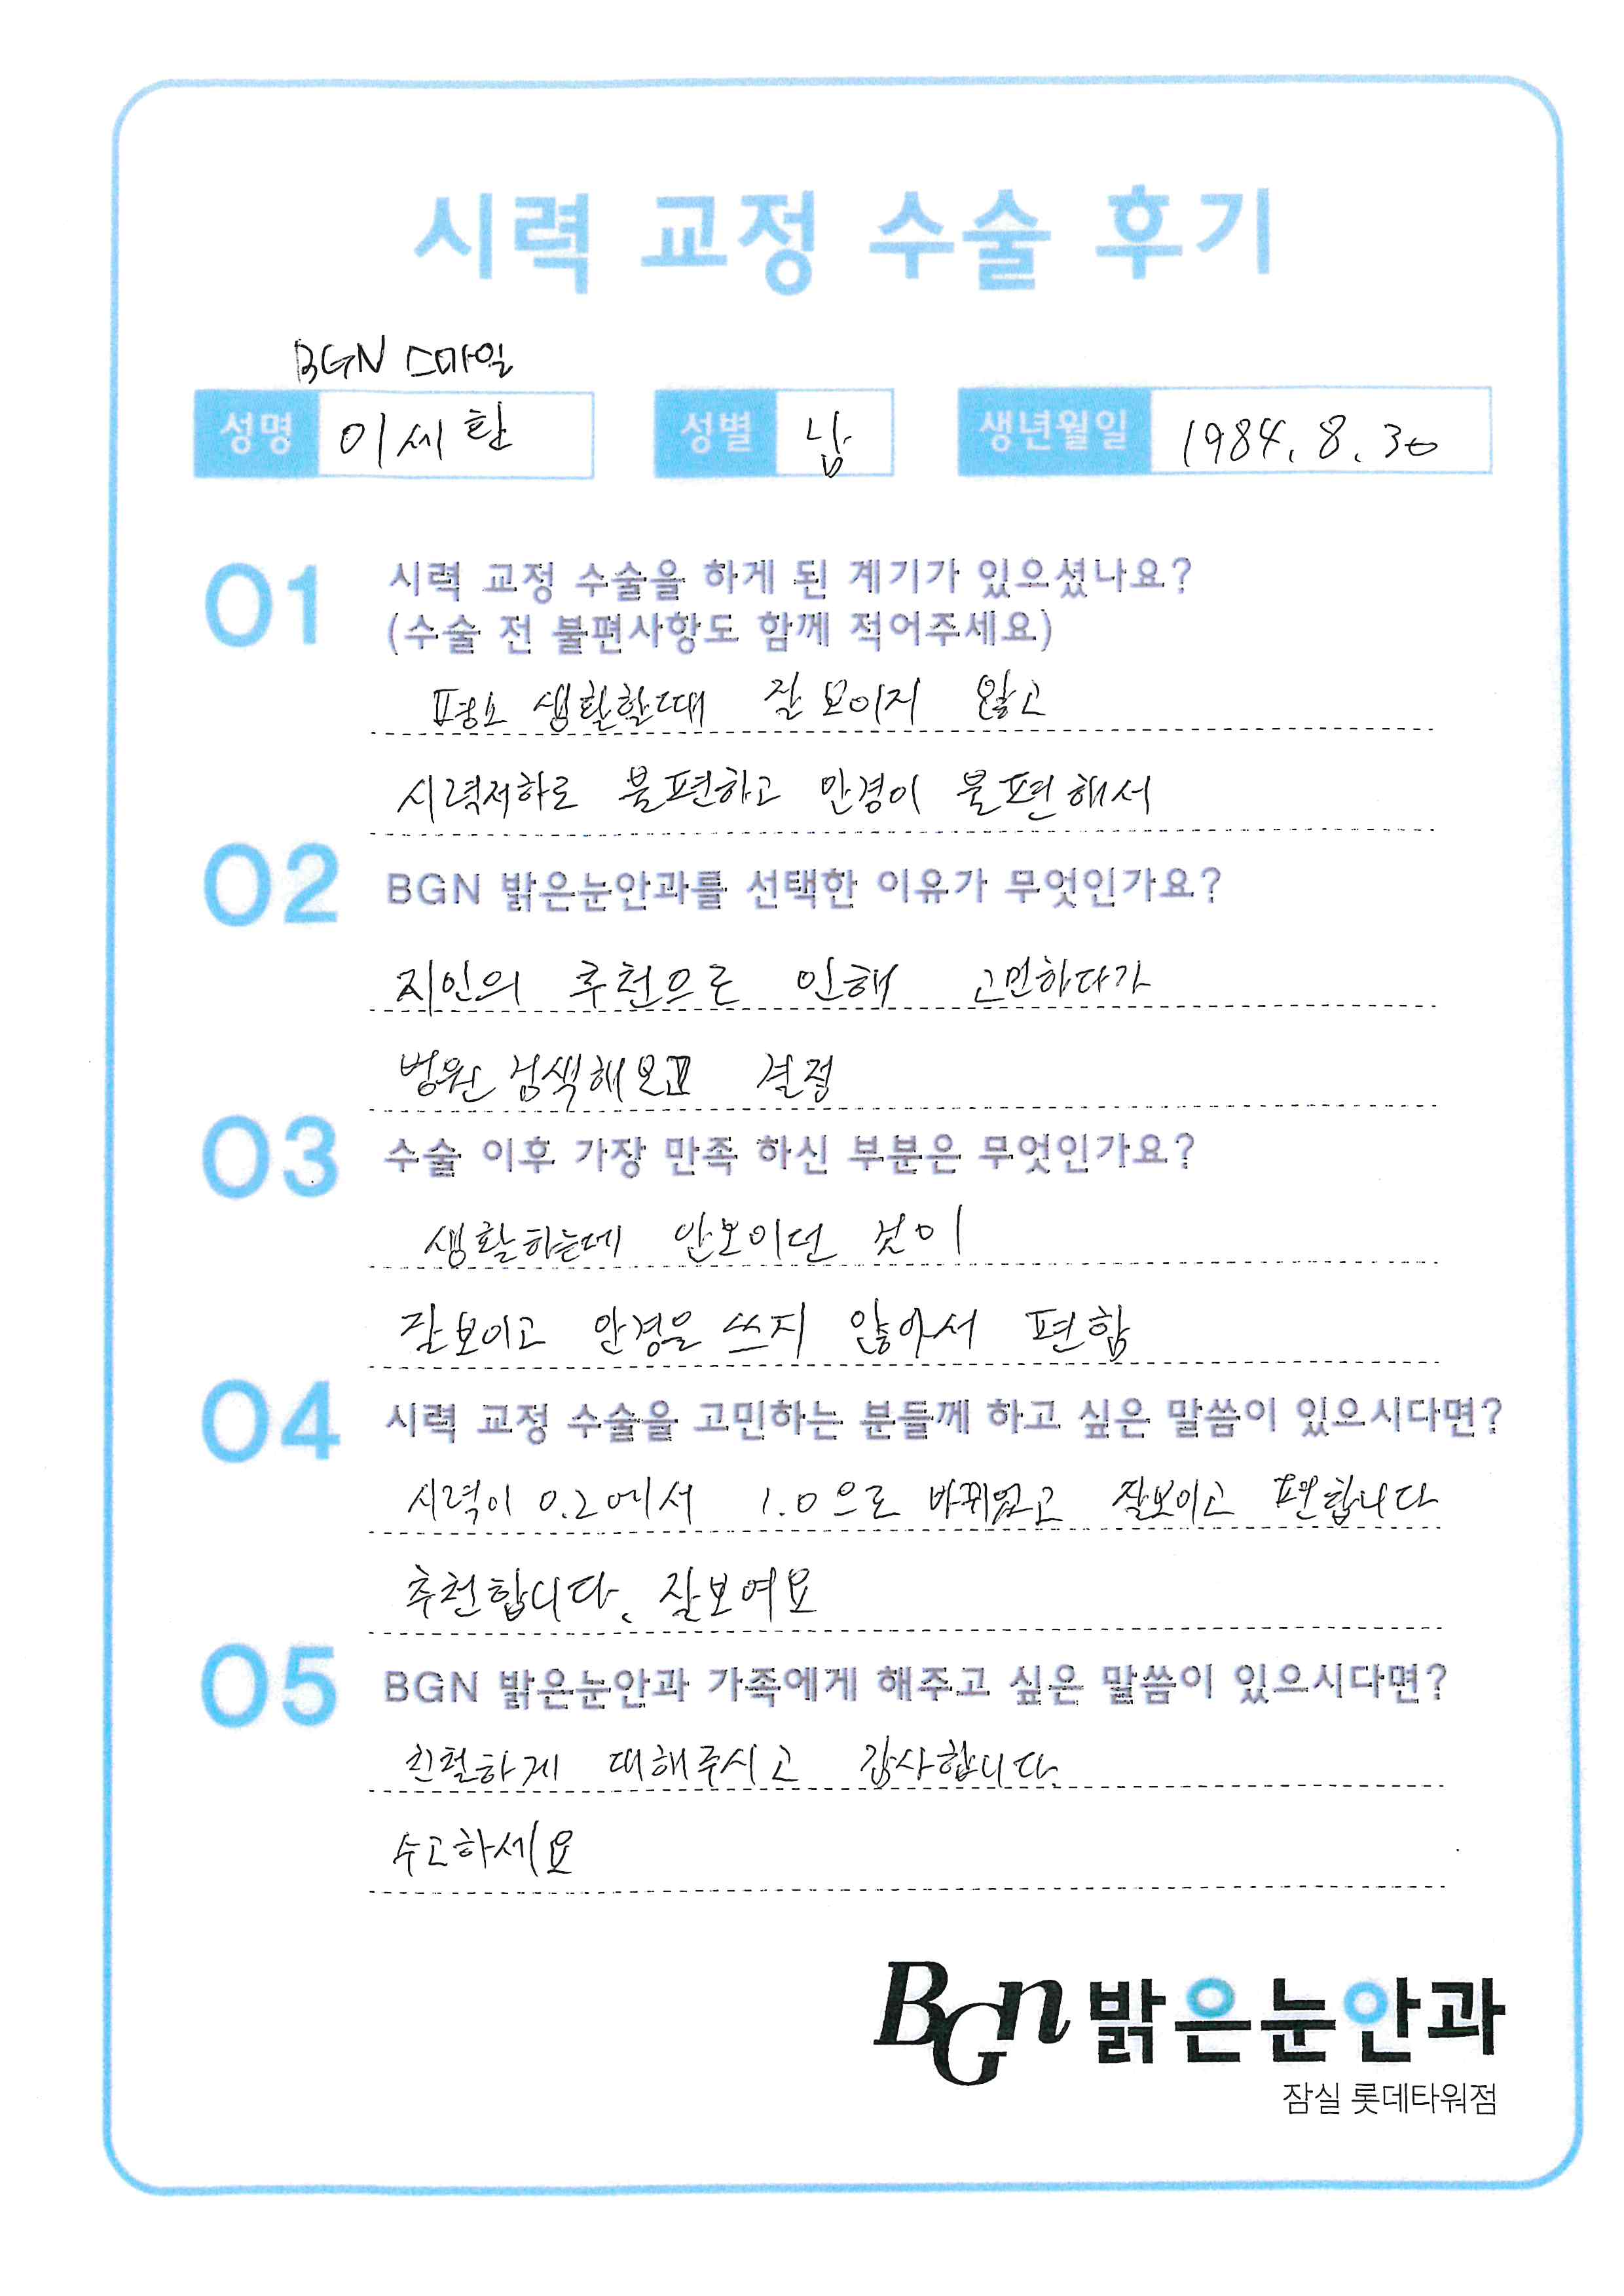 시력 교정 수술 후기
BGN 스마일
성명 이세환 성별 남 생년월일 1984. 8. 30
01 시력 교정 수술을 하게 된 계기가 있으셨나요?
(수술 전 불편사항도 함께 적어주세요)
평소 생활할때 잘 보이지 않고
시력저하로 불편하고 안경이 불편해서
02 BGN 밝은눈안과를 선택한 이유가 무엇인가요?
지인의 추천으로 인해 고민하다가
병원 검색해보고 결정
03 수술 이후 가장 만족 하신 부분은 무엇인가요?
생활하는데 안보이던 것이
잘보이고 안경을 쓰지 않아서 편함
04 시력 교정 수술을 고민하는 분들께 하고 싶은 말씀이 있으시다면?
시력이 0.2에서 1.0으로 바뀌었고 잘보이고 편합니다
추천합니다. 잘보여요
05 BGN 밝은눈안과 가족에게 해주고 싶은 말씀이 있으시다면?
친절하게 대해주시고 감사합니다.
수고하세요
BGN 밝은눈안과
잠실 롯데타워점